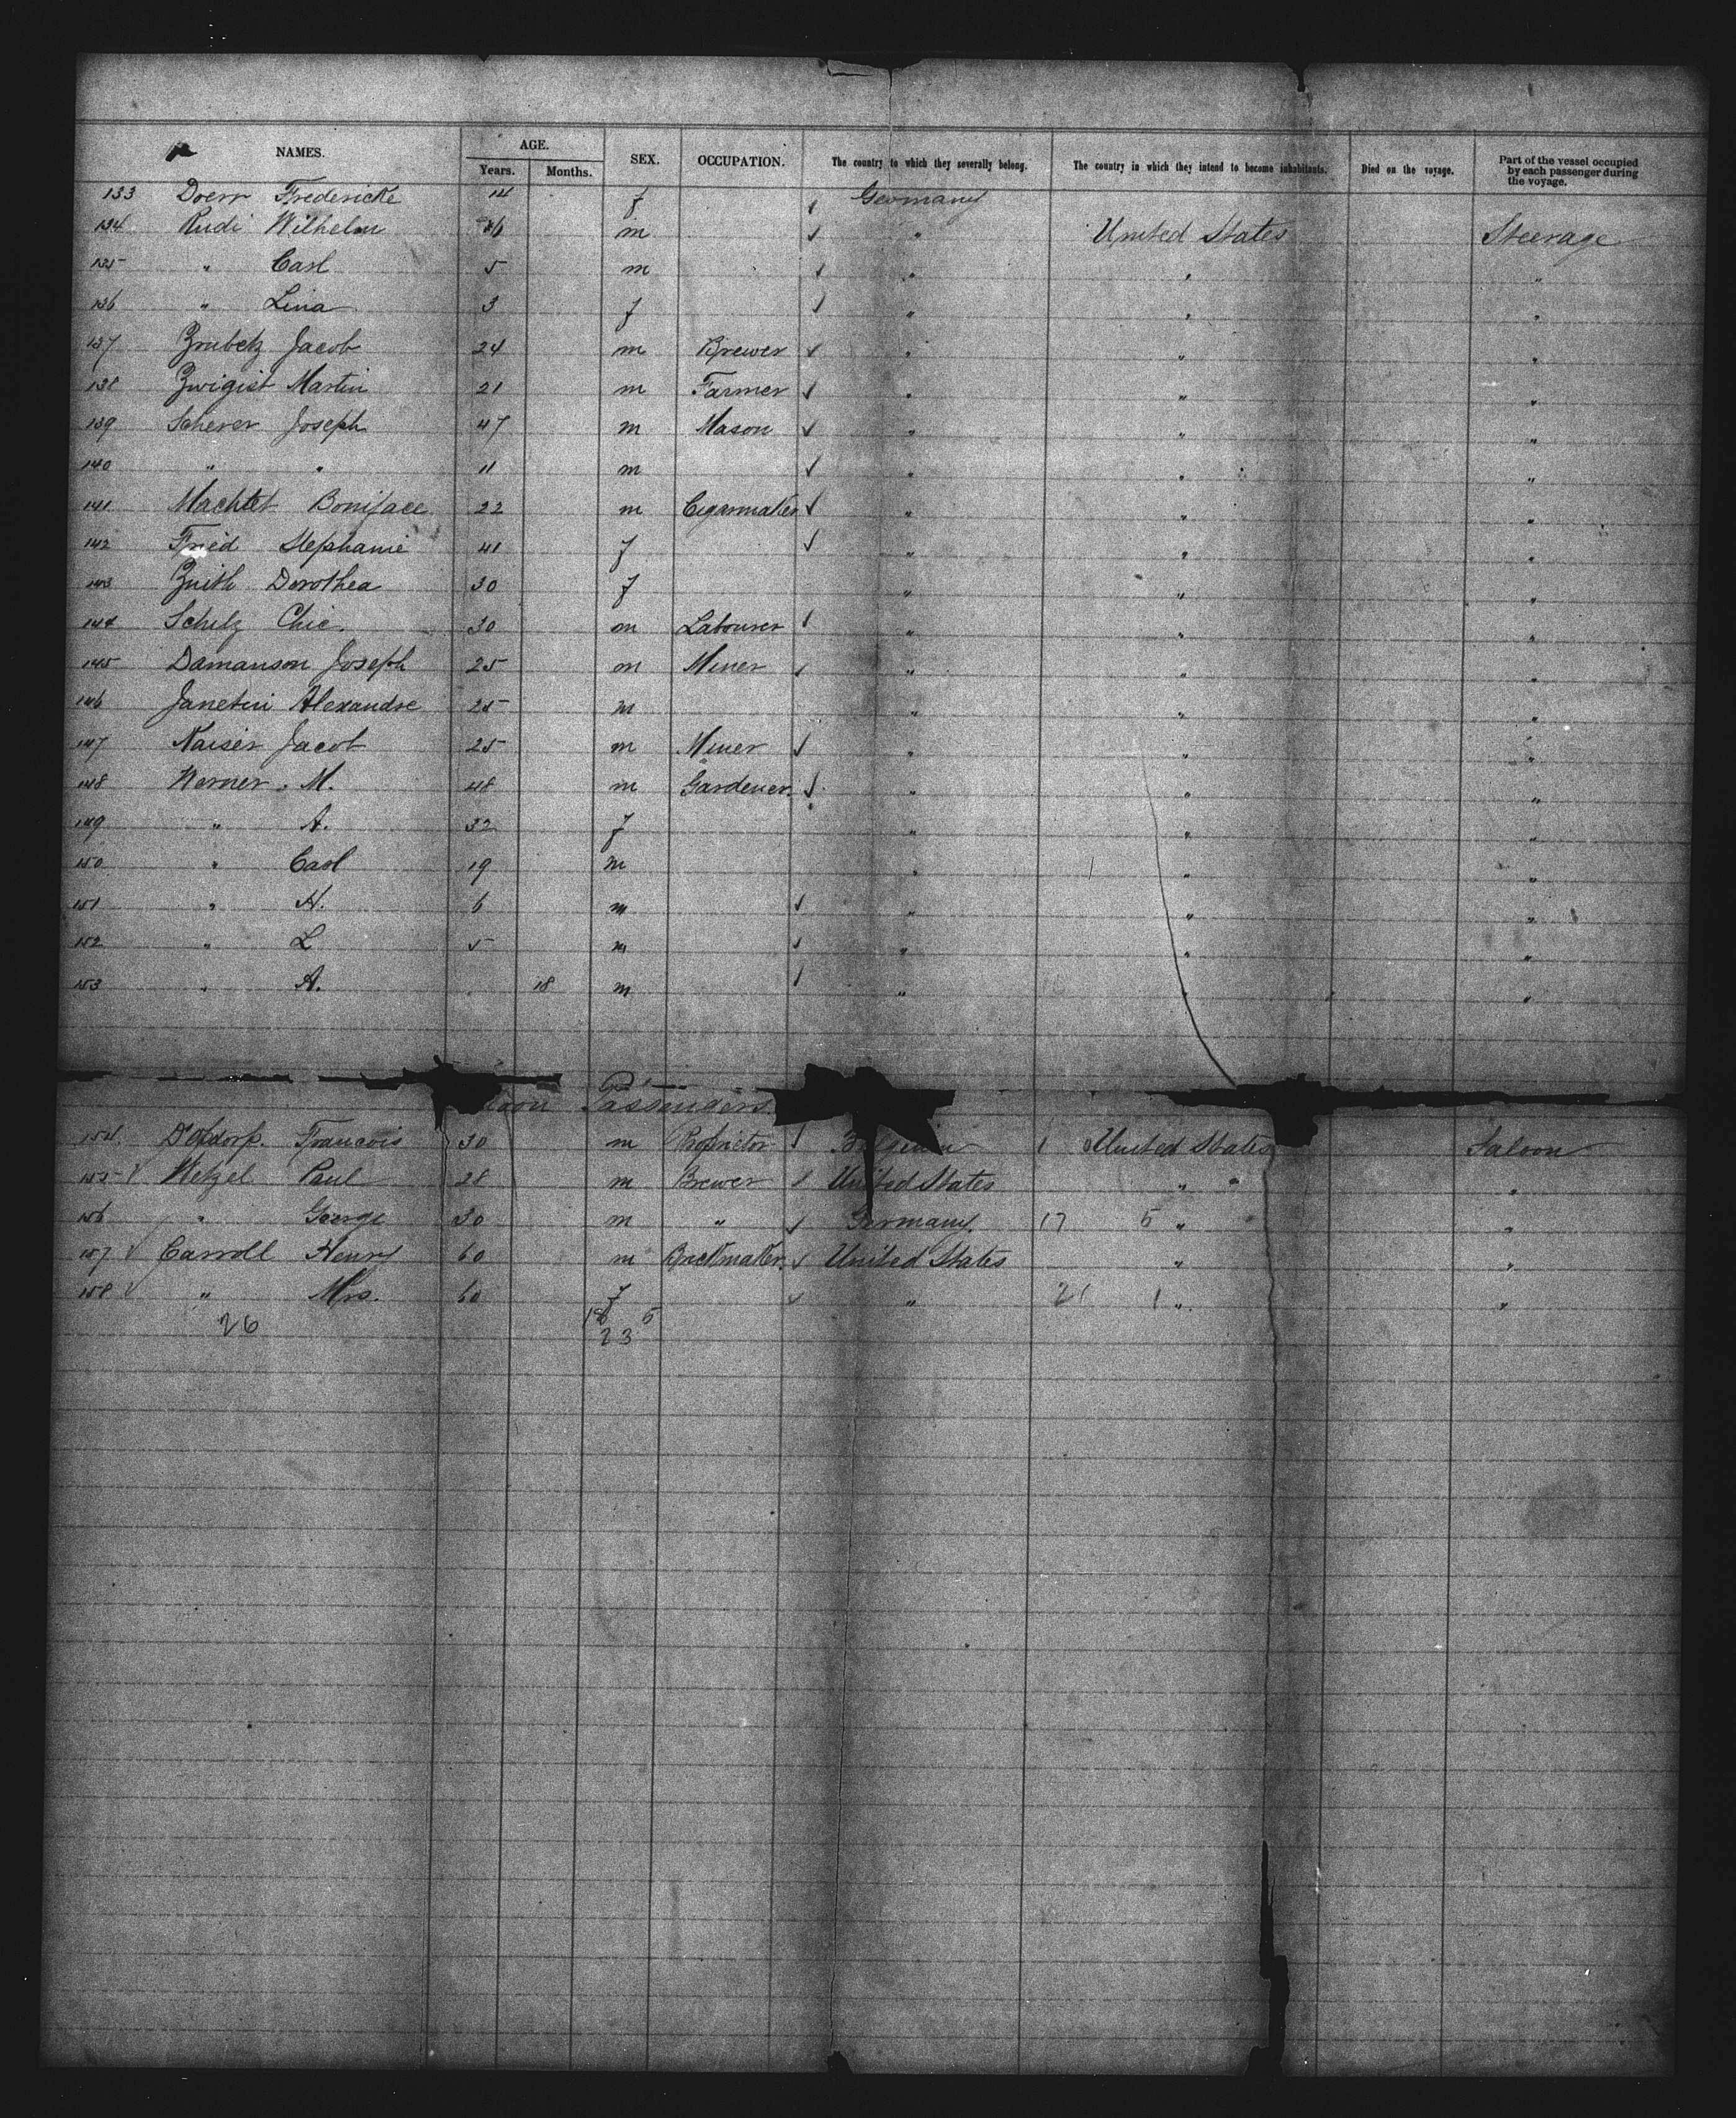 NAMES. AGE. SEX. OCCUPATION. The country to which they severally belong. The country in which they intend to become inhabitants. Died on the voyage. Part of the vessel occupied by each passenger during the voyage.
Years. Months.
133 Doerr Fredericke 14 f Germany
134 Rudi Wilhelm m " United States Steerage
135 " Carl 5 m " " "
136 " Lina 3 f " " "
137 Jacob 24 m Brewer " " "
138 Martin 21 m Farmer " " "
139 Scherer Joseph 47 m Mason " " "
140 " " 11 m " " "
141 Machtet Boniface 22 m Cigarmaker " " "
142 Fried Stephanie 41 f " " "
143 Dorothea 30 f " " "
144 Schilz 30 m Labourer " " "
145 Damanson Joseph 25 m Miner " " "
146 Alexandre 25 m " " "
147 Kaiser Jacob 25 m Miner " " "
148 Werner M. 48 m Gardener " " "
149 " A. 32 f " " "
150 " Carl 19 m " " "
151 " H. 6 m " " "
152 " L 5 m " " "
153 " A. 18 m " " "
Passengers
154 Francois 30 m Proprietor 1 United States Saloon
155 Wetzel Paul 28 m Brewer United States " " "
156 " George 30 m " Germany 17 5 " "
157 Carroll Henry 60 m Brickmaker United States " "
158 " Mrs. 60 f " 21 1 " "
26 18 5
23